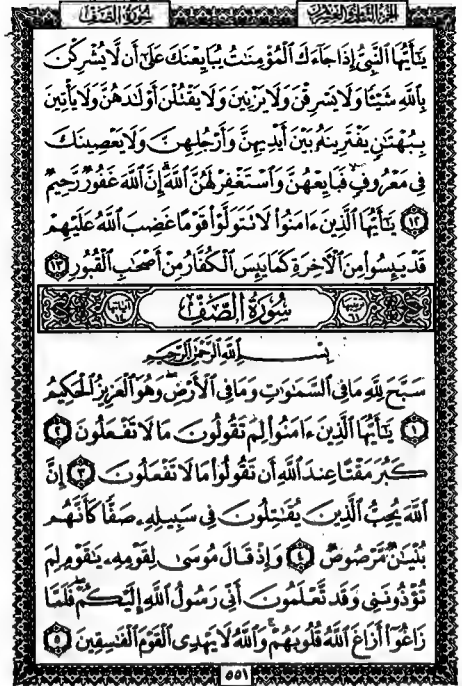 سُورَةُ الصَّفِّ الجزء الثامن والعشرون
يَٰٓأَيُّهَا ٱلنَّبِيُّ إِذَا جَآءَكَ ٱلْمُؤْمِنَٰتُ يُبَايِعْنَكَ عَلَىٰٓ أَن لَّا يُشْرِكْنَ
بِٱللَّهِ شَيْـًٔا وَلَا يَسْرِقْنَ وَلَا يَزْنِينَ وَلَا يَقْتُلْنَ أَوْلَٰدَهُنَّ وَلَا يَأْتِينَ
بِبُهْتَٰنٍ يَفْتَرِينَهُۥ بَيْنَ أَيْدِيهِنَّ وَأَرْجُلِهِنَّ وَلَا يَعْصِينَكَ
فِى مَعْرُوفٍ فَبَايِعْهُنَّ وَٱسْتَغْفِرْ لَهُنَّ ٱللَّهَ إِنَّ ٱللَّهَ غَفُورٌ رَّحِيمٌ
١٢ يَٰٓأَيُّهَا ٱلَّذِينَ ءَامَنُوا۟ لَا تَتَوَلَّوْا۟ قَوْمًا غَضِبَ ٱللَّهُ عَلَيْهِمْ
قَدْ يَئِسُوا۟ مِنَ ٱلْءَاخِرَةِ كَمَا يَئِسَ ٱلْكُفَّارُ مِنْ أَصْحَٰبِ ٱلْقُبُورِ ١٣
ترتيبها ٦١ سُورَةُ الصَّفِّ آياتها ١٤
بِسْمِ ٱللَّهِ ٱلرَّحْمَٰنِ ٱلرَّحِيمِ
سَبَّحَ لِلَّهِ مَا فِى ٱلسَّمَٰوَٰتِ وَمَا فِى ٱلْأَرْضِ ۖ وَهُوَ ٱلْعَزِيزُ ٱلْحَكِيمُ
١ يَٰٓأَيُّهَا ٱلَّذِينَ ءَامَنُوا۟ لِمَ تَقُولُونَ مَا لَا تَفْعَلُونَ ٢
كَبُرَ مَقْتًا عِندَ ٱللَّهِ أَن تَقُولُوا۟ مَا لَا تَفْعَلُونَ ٣ إِنَّ
ٱللَّهَ يُحِبُّ ٱلَّذِينَ يُقَٰتِلُونَ فِى سَبِيلِهِۦ صَفًّا كَأَنَّهُم
بُنْيَٰنٌ مَّرْصُوصٌ ٤ وَإِذْ قَالَ مُوسَىٰ لِقَوْمِهِۦ يَٰقَوْمِ لِمَ
تُؤْذُونَنِى وَقَد تَّعْلَمُونَ أَنِّى رَسُولُ ٱللَّهِ إِلَيْكُمْ ۖ فَلَمَّا
زَاغُوٓا۟ أَزَاغَ ٱللَّهُ قُلُوبَهُمْ ۚ وَٱللَّهُ لَا يَهْدِى ٱلْقَوْمَ ٱلْفَٰسِقِينَ ٥
٥٥١